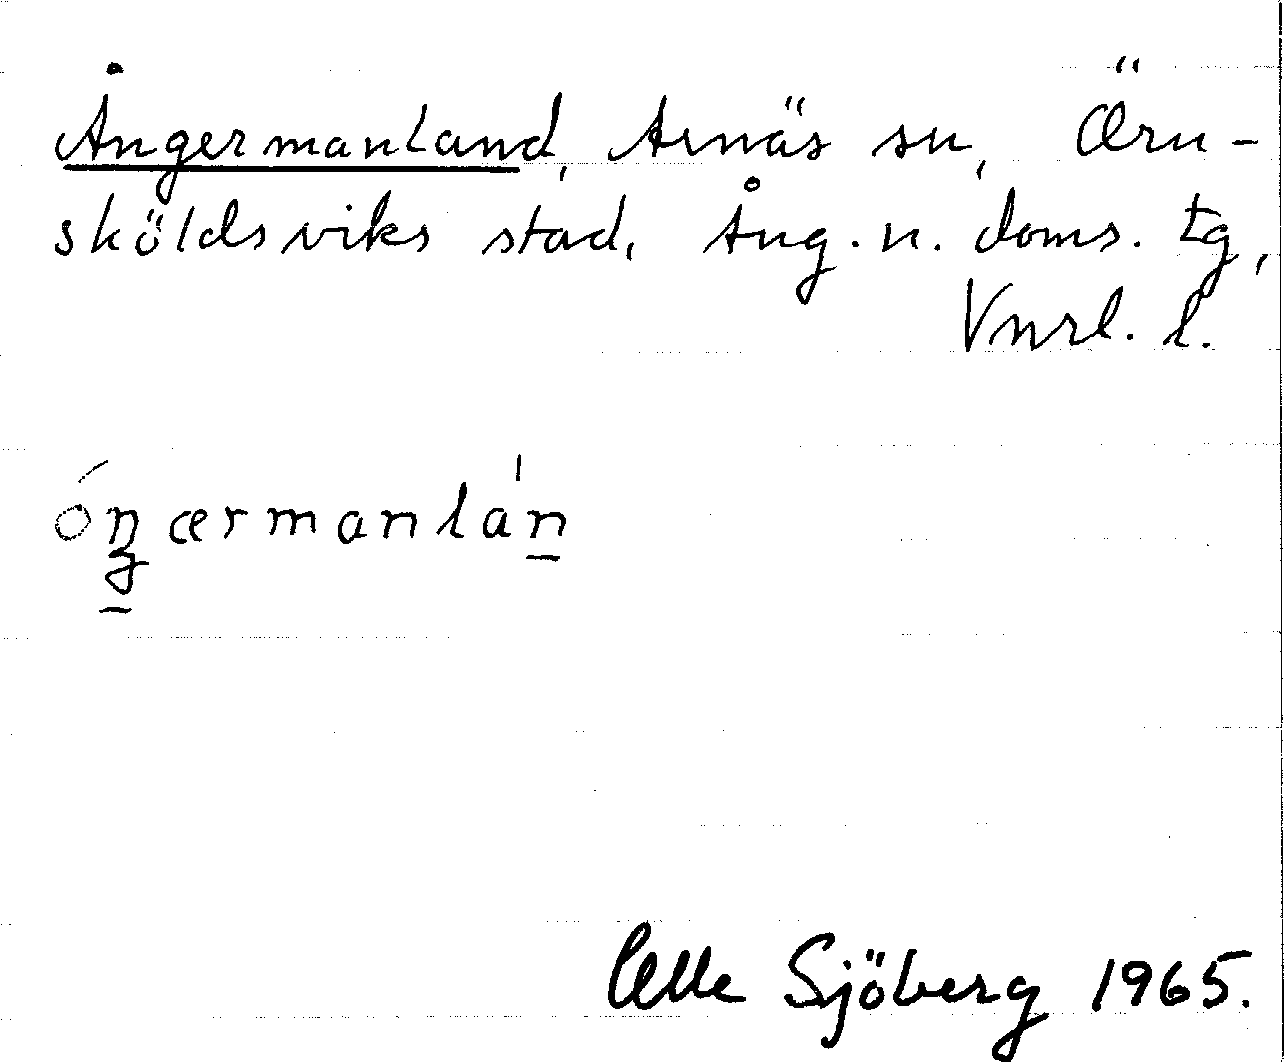 Ångermanland, Arnäs sn, Örn-
sköldsviks stad, Ång. n. doms. tg,
Vnrl. l.
óŋærmanlán
Olle Sjöberg 1965.